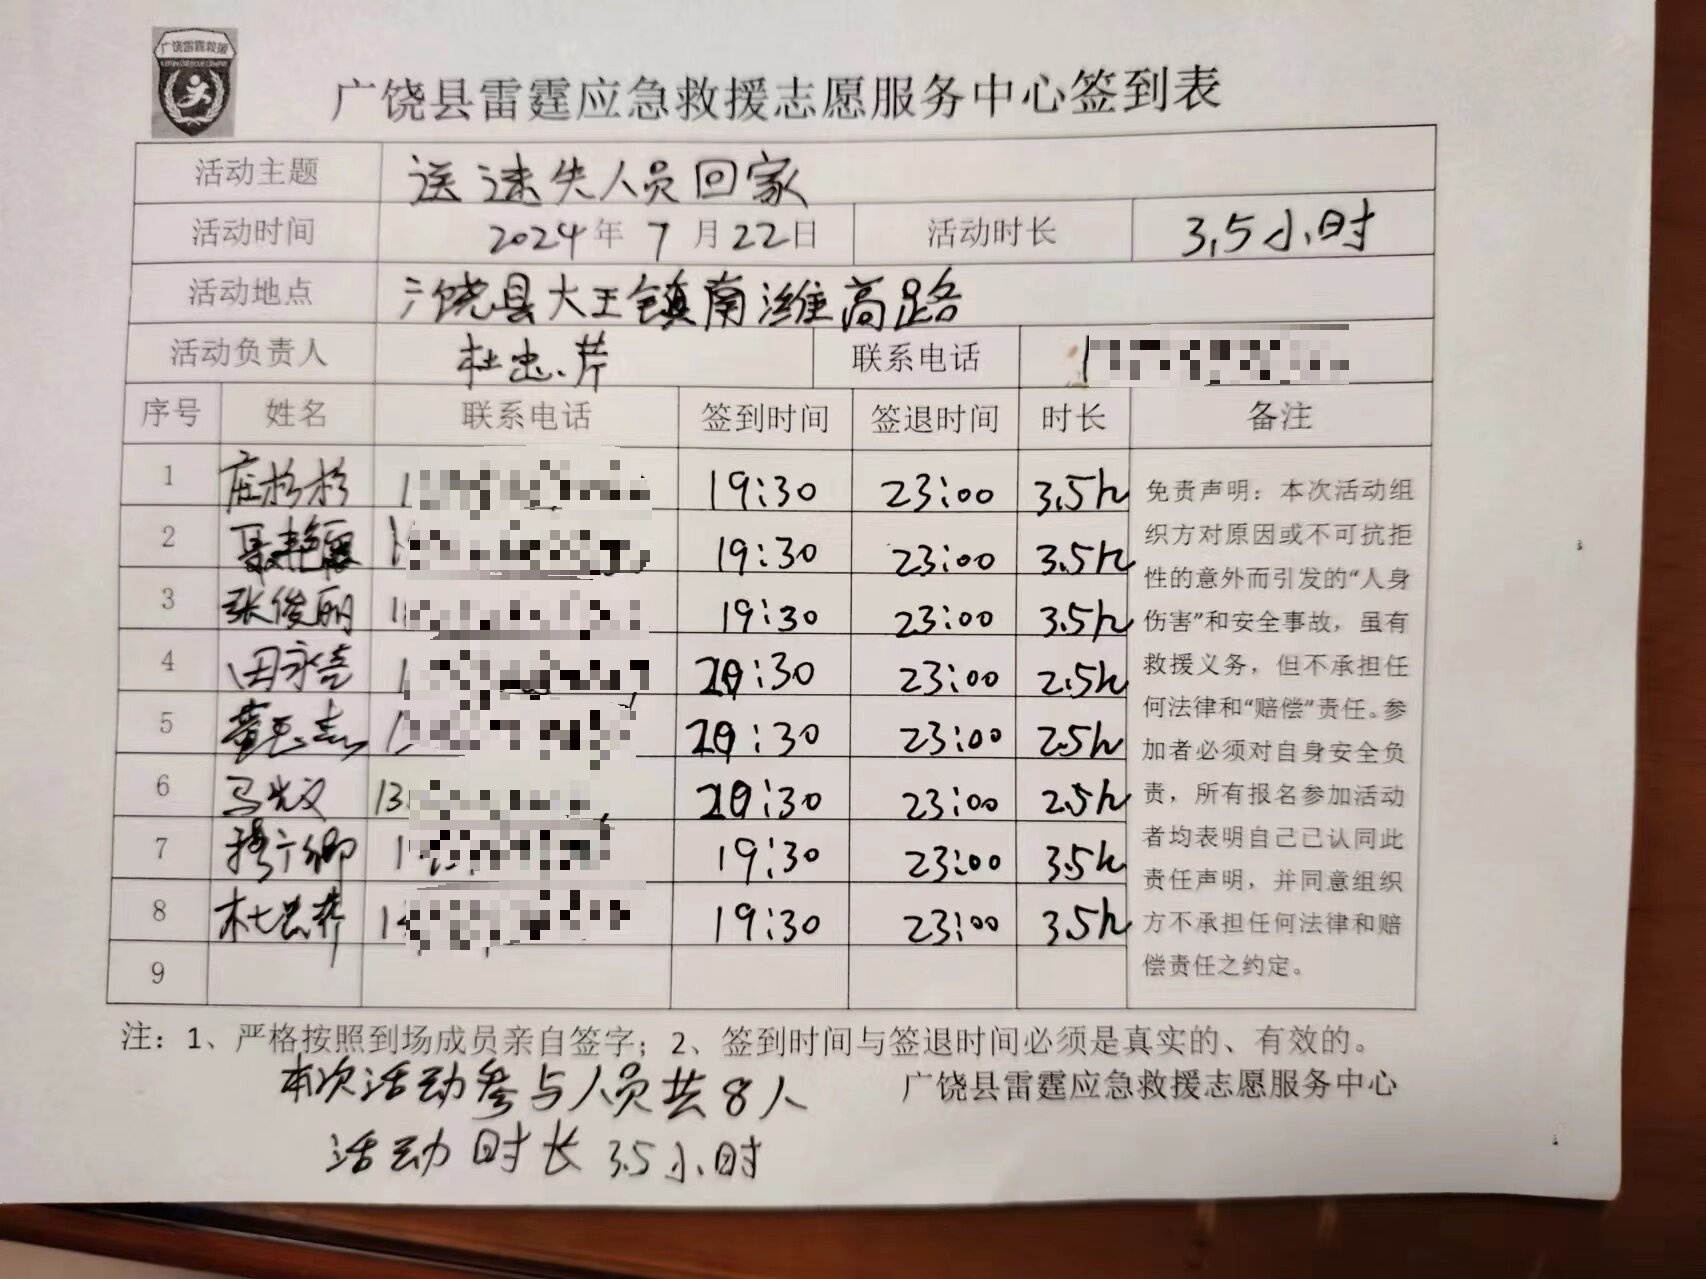 广饶雷霆救援
广饶县雷霆应急救援志愿服务中心签到表
活动主题 送迷失人员回家
活动时间 2024年7月22日 活动时长 3.5小时
活动地点 广饶县大王镇南潍高路
活动负责人 杜忠芹 联系电话 1
序号 姓名 联系电话 签到时间 签退时间 时长 备注
1 庄杉杉 1 19:30 23:00 3.5h
2 聂艳霞 1 19:30 23:00 3.5h
3 张俊丽 1 19:30 23:00 3.5h
4 田永亮 1 20:30 23:00 2.5h
5 1 20:30 23:00 2.5h
6 马光义 13 20:30 23:00 2.5h
7 1 19:30 23:00 3.5h
8 杜忠芹 1 19:30 23:00 3.5h
9
免责声明：本次活动组
织方对原因或不可抗拒
性的意外而引发的“人身
伤害”和安全事故，虽有
救援义务，但不承担任
何法律和“赔偿”责任。参
加者必须对自身安全负
责，所有报名参加活动
者均表明自己已认同此
责任声明，并同意组织
方不承担任何法律和赔
偿责任之约定。
注：1、严格按照到场成员亲自签字；2、签到时间与签退时间必须是真实的、有效的。
本次活动参与人员共8人
广饶县雷霆应急救援志愿服务中心
活动时长3.5小时